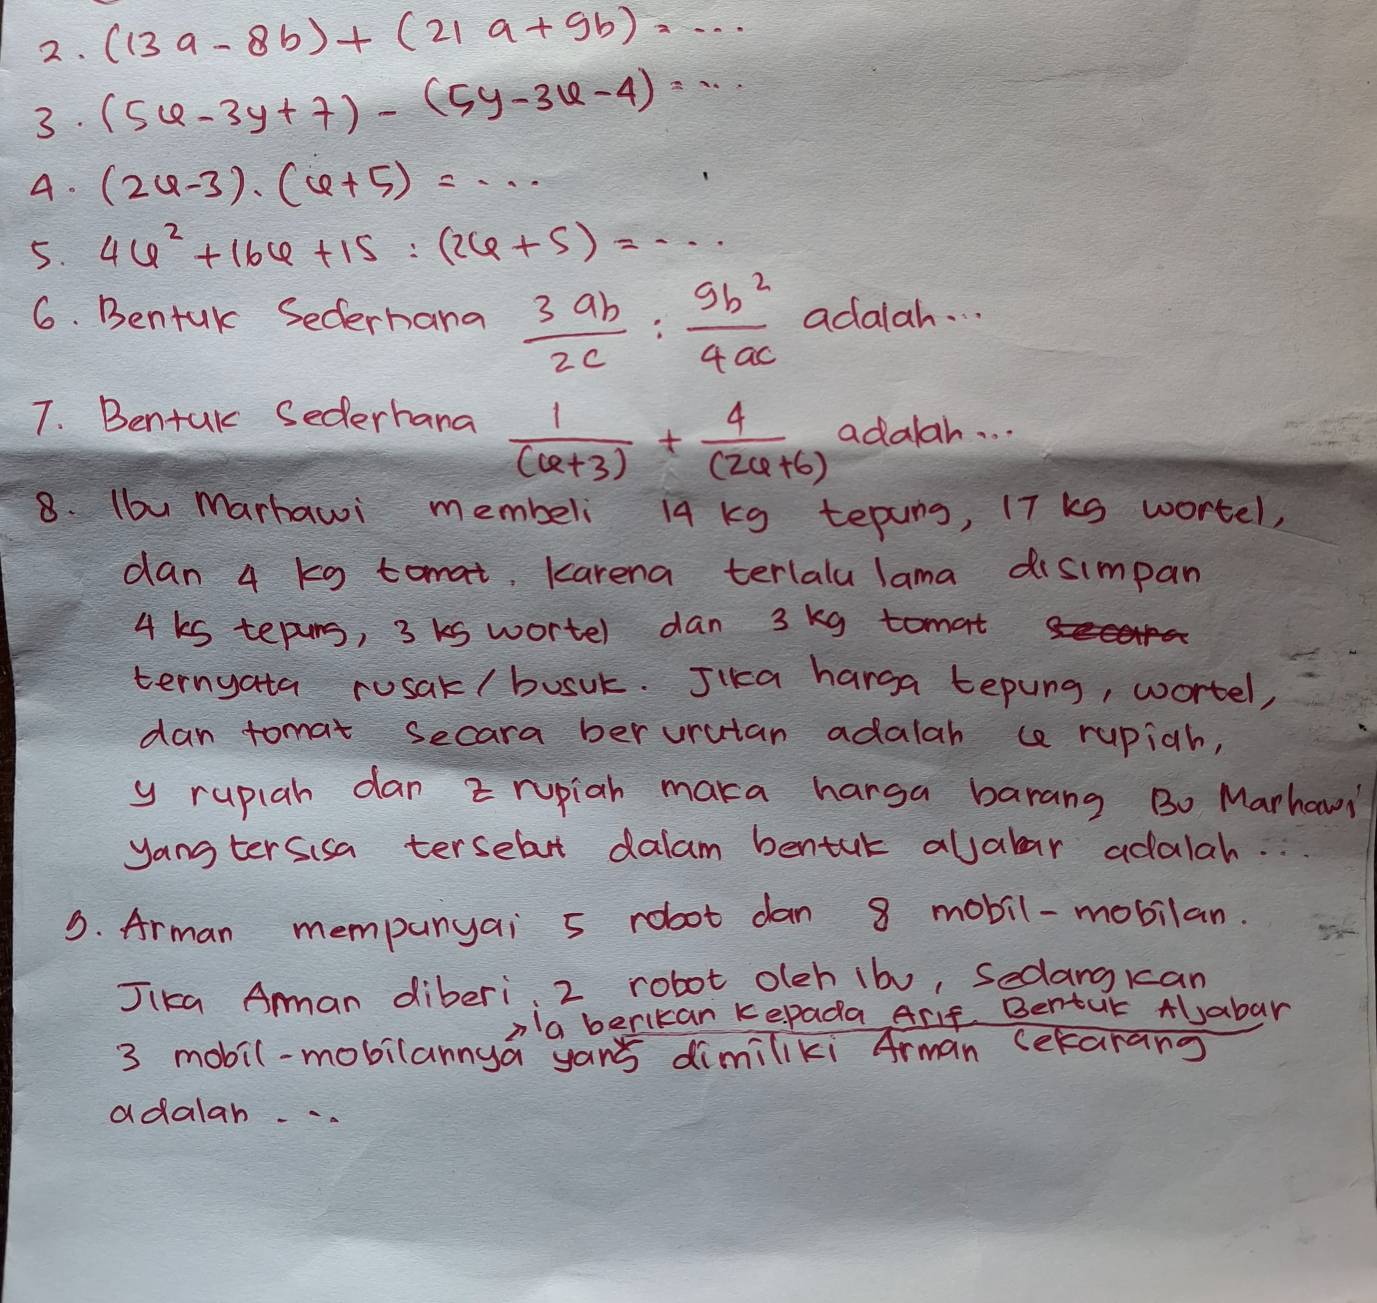 2. (13a - 8b) + (21a + 9b) = ...
3. (5x - 3y + 7) - (5y - 3x - 4) = ...
4. (2x - 3) . (x + 5) = ...
5. 4x² + 16x + 15 : (2x + 5) = ...
6. Bentuk Sederhana 3ab/2c : 9b²/4ac adalah...
7. Bentuk Sederhana 1/(x+3) + 4/(2x+6) adalah...
8. Ibu Marhawi membeli 14 kg tepung, 17 kg wortel,
dan 4 kg tomat. Karena terlalu lama disimpan
4 kg tepung, 3 kg wortel dan 3 kg tomat secara
ternyata rusak/busuk. Jika harga tepung, wortel,
dan tomat secara berurutan adalah x rupiah,
y rupiah dan z rupiah maka harga barang Bu Marhawi
yang tersisa tersebut dalam bentuk aljabar adalah...
9. Arman mempunyai 5 robot dan 8 mobil-mobilan.
Jika Arman diberi 2 robot oleh Ibu, Sedangkan
ia berikan kepada Arif. Bentuk Aljabar
3 mobil-mobilannya yang dimiliki Arman sekarang
adalah ...